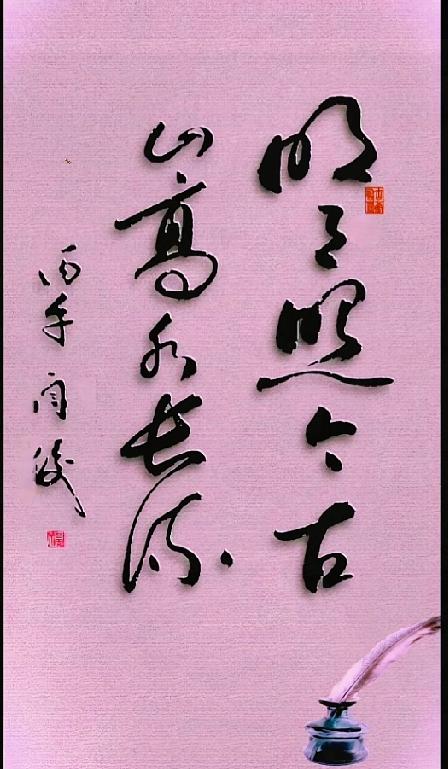 明月照今古
山高水长流
丙午